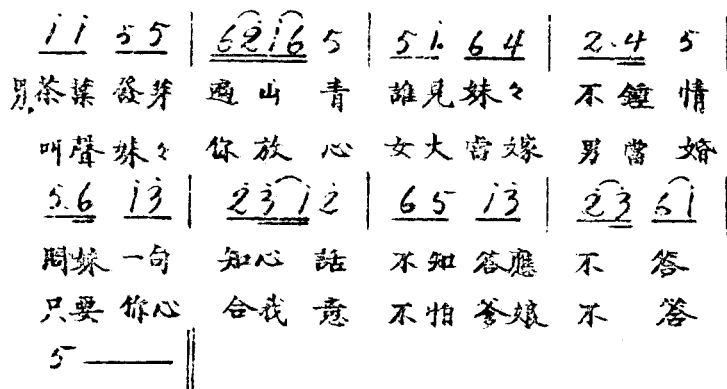 i i 5 5 | 6 2 i 6 5 | 5 i. 6 4 | 2. 4 5 |
男.茶葉發芽 遍山青 誰見妹々 不鍾情
叫聲妹々 你放心 女大當嫁 男當婚
5. 6 i 3 | 2 3 i 2 | 6 5 i 3 | 2 3 6 i |
問妹一句 知心話 不知答應 不答
只要你心 合我意 不怕爹娘 不答
5 —